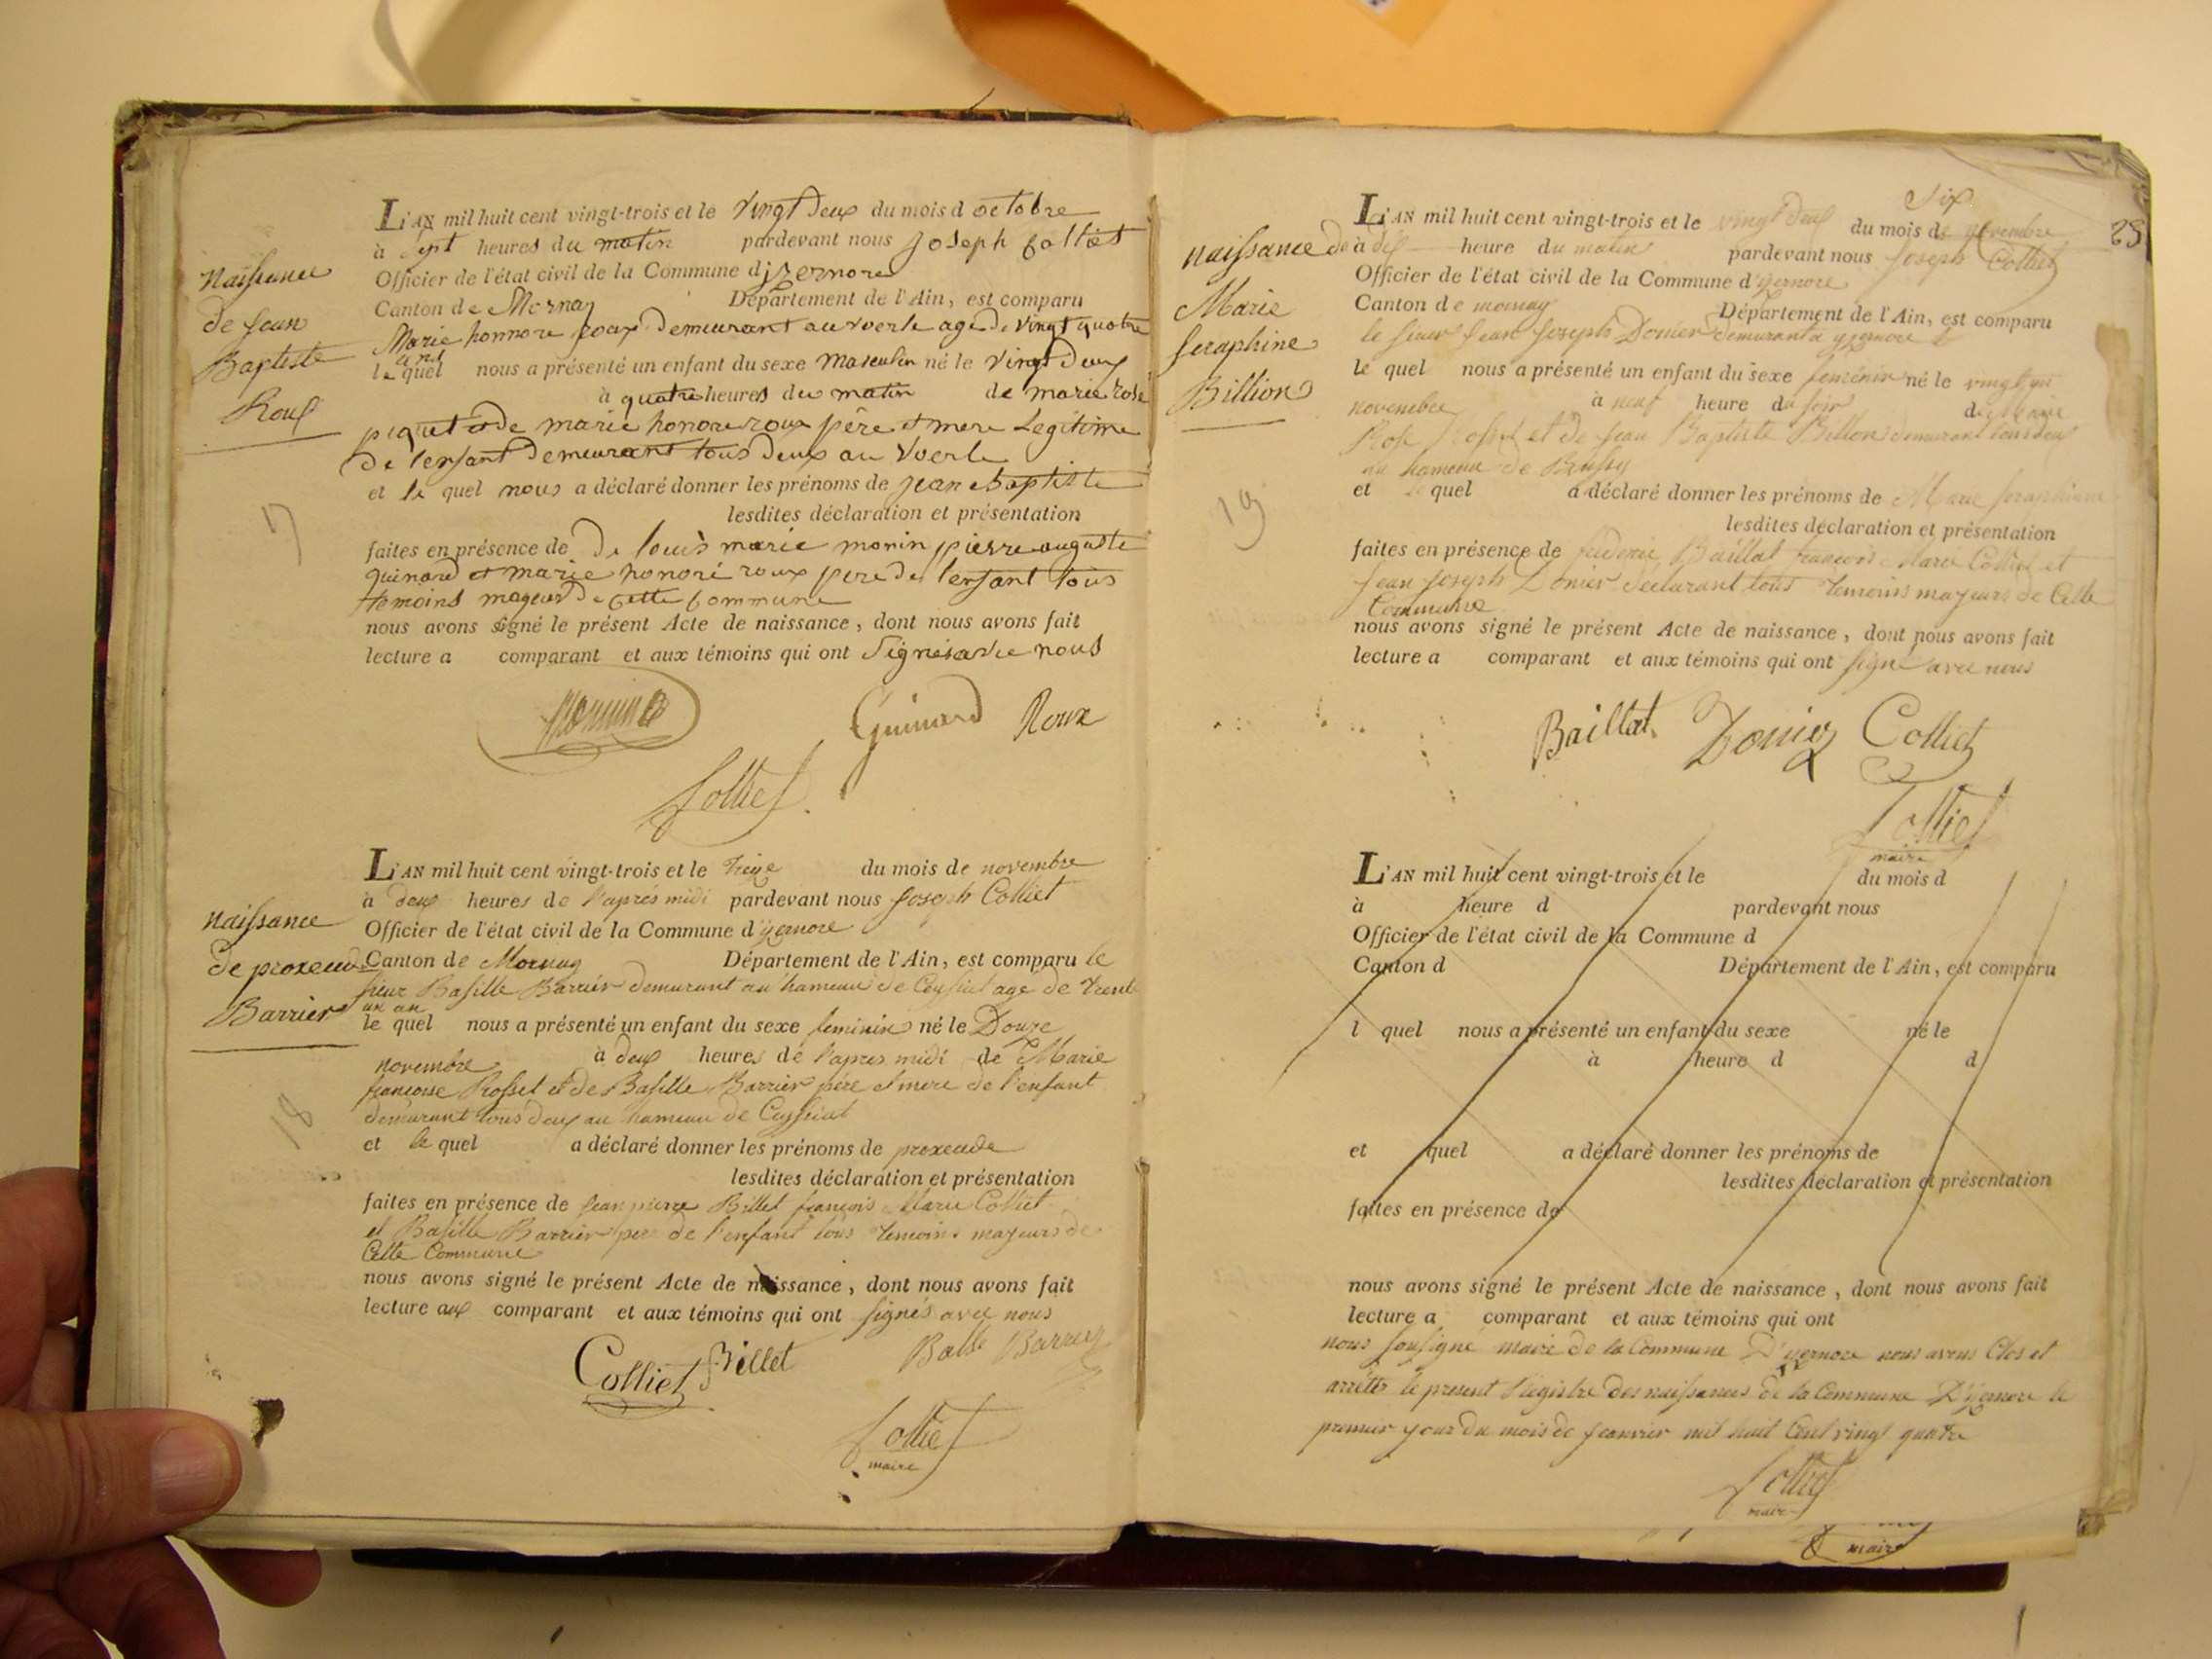 Naissance
de Jean
Baptiste
Roux
17
L'AN mil huit cent vingt-trois et le vingt deux du mois d octobre
à sept heures du matin pardevant nous joseph colliet
Officier de l'état civil de la Commune d izernore
Canton de Mornay Département de l'Ain, est comparu
Marie honnore roux demeurant au voerle age de vingt quatre
ans
le quel nous a présenté un enfant du sexe masculin né le vingt deux
à quatre heures du matin de marie rose
piquet et de marie honore roux père et mere Legitime
de lenfant demeurant tous deux au voerle
et le quel nous a déclaré donner les prénoms de jean Baptiste
lesdites déclaration et présentation
faites en présence de De louis marie monin pierre auguste
guinard et marie honoré roux pere de lenfant tous
temoins mageur de cette commune
nous avons signé le présent Acte de naissance, dont nous avons fait
lecture a comparant et aux témoins qui ont signés avec nous
Guinard Roux
Colliet
naissance
de proxende
Barrier
18
L'AN mil huit cent vingt-trois et le treize du mois de novembre
à deux heures de l'après midi pardevant nous Joseph Colliet
Officier de l'état civil de la Commune d'yzernore
Canton de Mornay Département de l'Ain, est comparu le
sieur Basille Barrier demurant au hameau de Ceyssiat age de trente
un an
le quel nous a présenté un enfant du sexe feminin né le Douze
novembre à deux heures de l'apres midi de Marie
francoise Rosset et de Basille Barrier père et mere de l'enfant
demurant tous deux au hameau de Ceyssiat
et le quel a déclaré donner les prénoms de proxende
lesdites déclaration et présentation
faites en présence de Jean pierre Billet françois Marie Colliet
et Basille Barrier pere de l'enfant tous temoins majeurs de
Cette Commune
nous avons signé le présent Acte de naissance, dont nous avons fait
lecture aux comparant et aux témoins qui ont signés avec nous
Colliet Billet Barrier
Colliet
maire
23
naissance de
Marie
Seraphine
Billion
19
six
L'AN mil huit cent vingt-trois et le vingt deux du mois de novembre
à dix heure du matin pardevant nous Joseph Colliet
Officier de l'état civil de la Commune d'yzernore
Canton de mornay Département de l'Ain, est comparu
le sieur Jean Joseph Donier demurant a yzernore
le quel nous a présenté un enfant du sexe feminin né le vingt un
novembre à neuf heure du soir de marie
Rose Rosset et de Jean Baptiste Billon demurant tous deux
au hameau de Bussy
et le quel a déclaré donner les prénoms de Marie Seraphine
lesdites déclaration et présentation
faites en présence de Baillat françois Marie Colliet et
Jean Joseph Donier declarant tous temoins majeurs de Cette
Commune
nous avons signé le présent Acte de naissance, dont nous avons fait
lecture a comparant et aux témoins qui ont signé avec nous
Baillat Donier Colliet
Colliet
maire
L'AN mil huit cent vingt-trois et le du mois d
à heure d pardevant nous
Officier de l'état civil de la Commune d
Canton d Département de l'Ain, est comparu
l quel nous a présenté un enfant du sexe né le
à heure d d
et quel a déclaré donner les prénoms de
lesdites déclaration et présentation
faites en présence de
nous avons signé le présent Acte de naissance, dont nous avons fait
lecture a comparant et aux témoins qui ont
nous sousigné maire de la Commune D'yzernore nous avons Clos et
arrêtés le present Régistre des naissances de la Commune D'yzernore le
premier jour du mois de Jeanvier mil huit Cent vingt quatre
Colliet
maire
maire